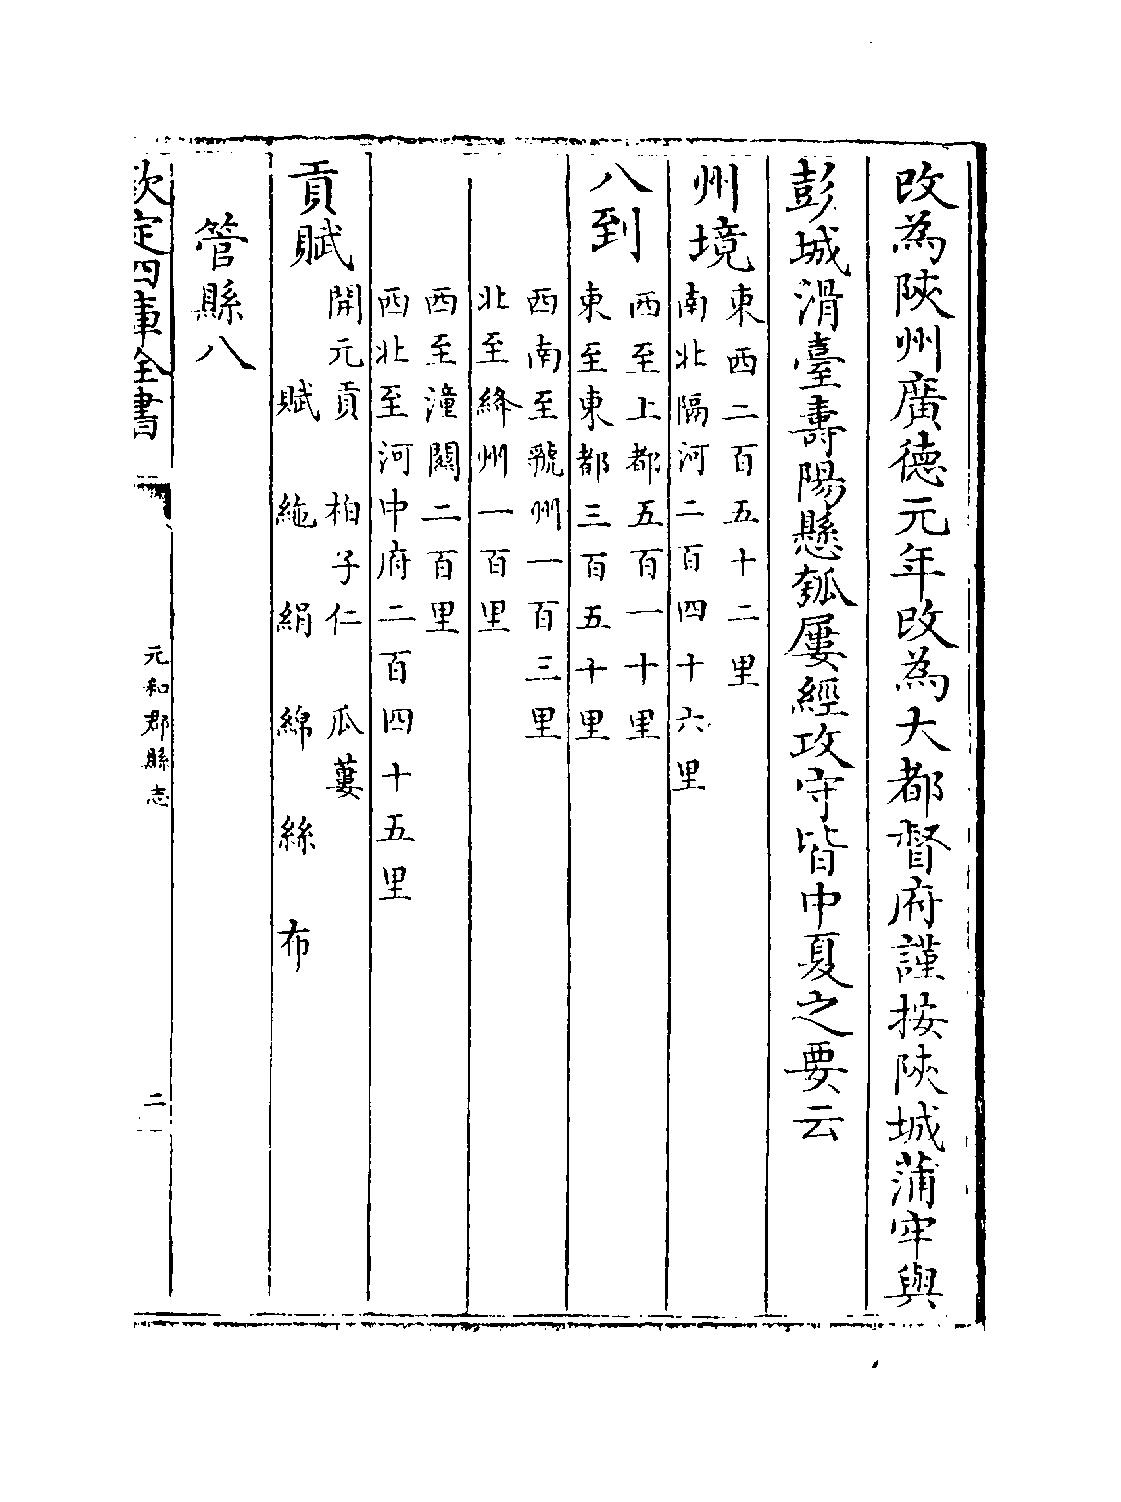 改為陜州廣德元年改為大都督府謹按陜城蒲牢與
彭城滑臺夀陽懸瓠屢經攻守皆中夏之要云
州境
東西二百五十二里
南北隔河二百四十六里
八到
西至上都五百一十里
東至東都三百五十里
西南至虢州一百三里
北至絳州一百里
西至潼關二百里
西北至河中府二百四十五里
貢賦
開元貢 柏子仁 瓜蔞
賦 絁 絹 綿 絲 布
管縣八
欽定四庫全書
元和郡縣志
二